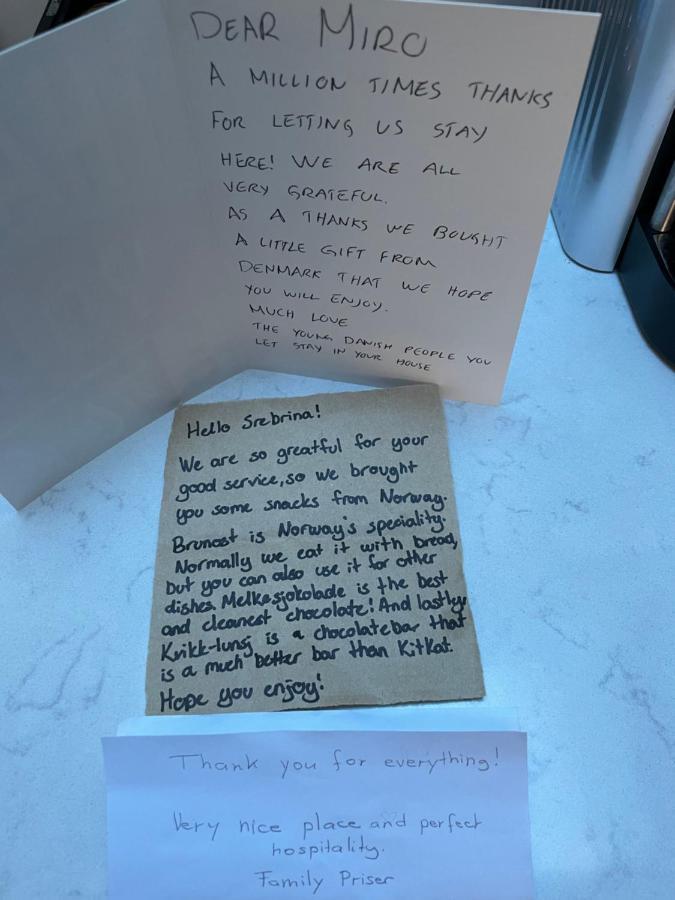 DEAR MIRO
A MILLION TIMES THANKS
FOR LETTING US STAY
HERE! WE ARE ALL
VERY GRATEFUL.
AS A THANKS WE BOUGHT
A LITTLE GIFT FROM
DENMARK THAT WE HOPE
YOU WILL ENJOY.
MUCH LOVE
THE YOUNG DANISH PEOPLE YOU
LET STAY IN YOUR HOUSE
Hello Srebrina!
We are so greatful for your
good service, so we brought
you some snacks from Norway.
Brunost is Norway's speciality.
Normally we eat it with bread,
but you can also use it for other
dishes. Melkesjokolade is the best
and cleanest chocolate! And lastly
Kvikk-lunsj is a chocolatebar that
is a much better bar than KitKat.
Hope you enjoy!
Thank you for everything!
Very nice place and perfect
hospitality.
Family Priser